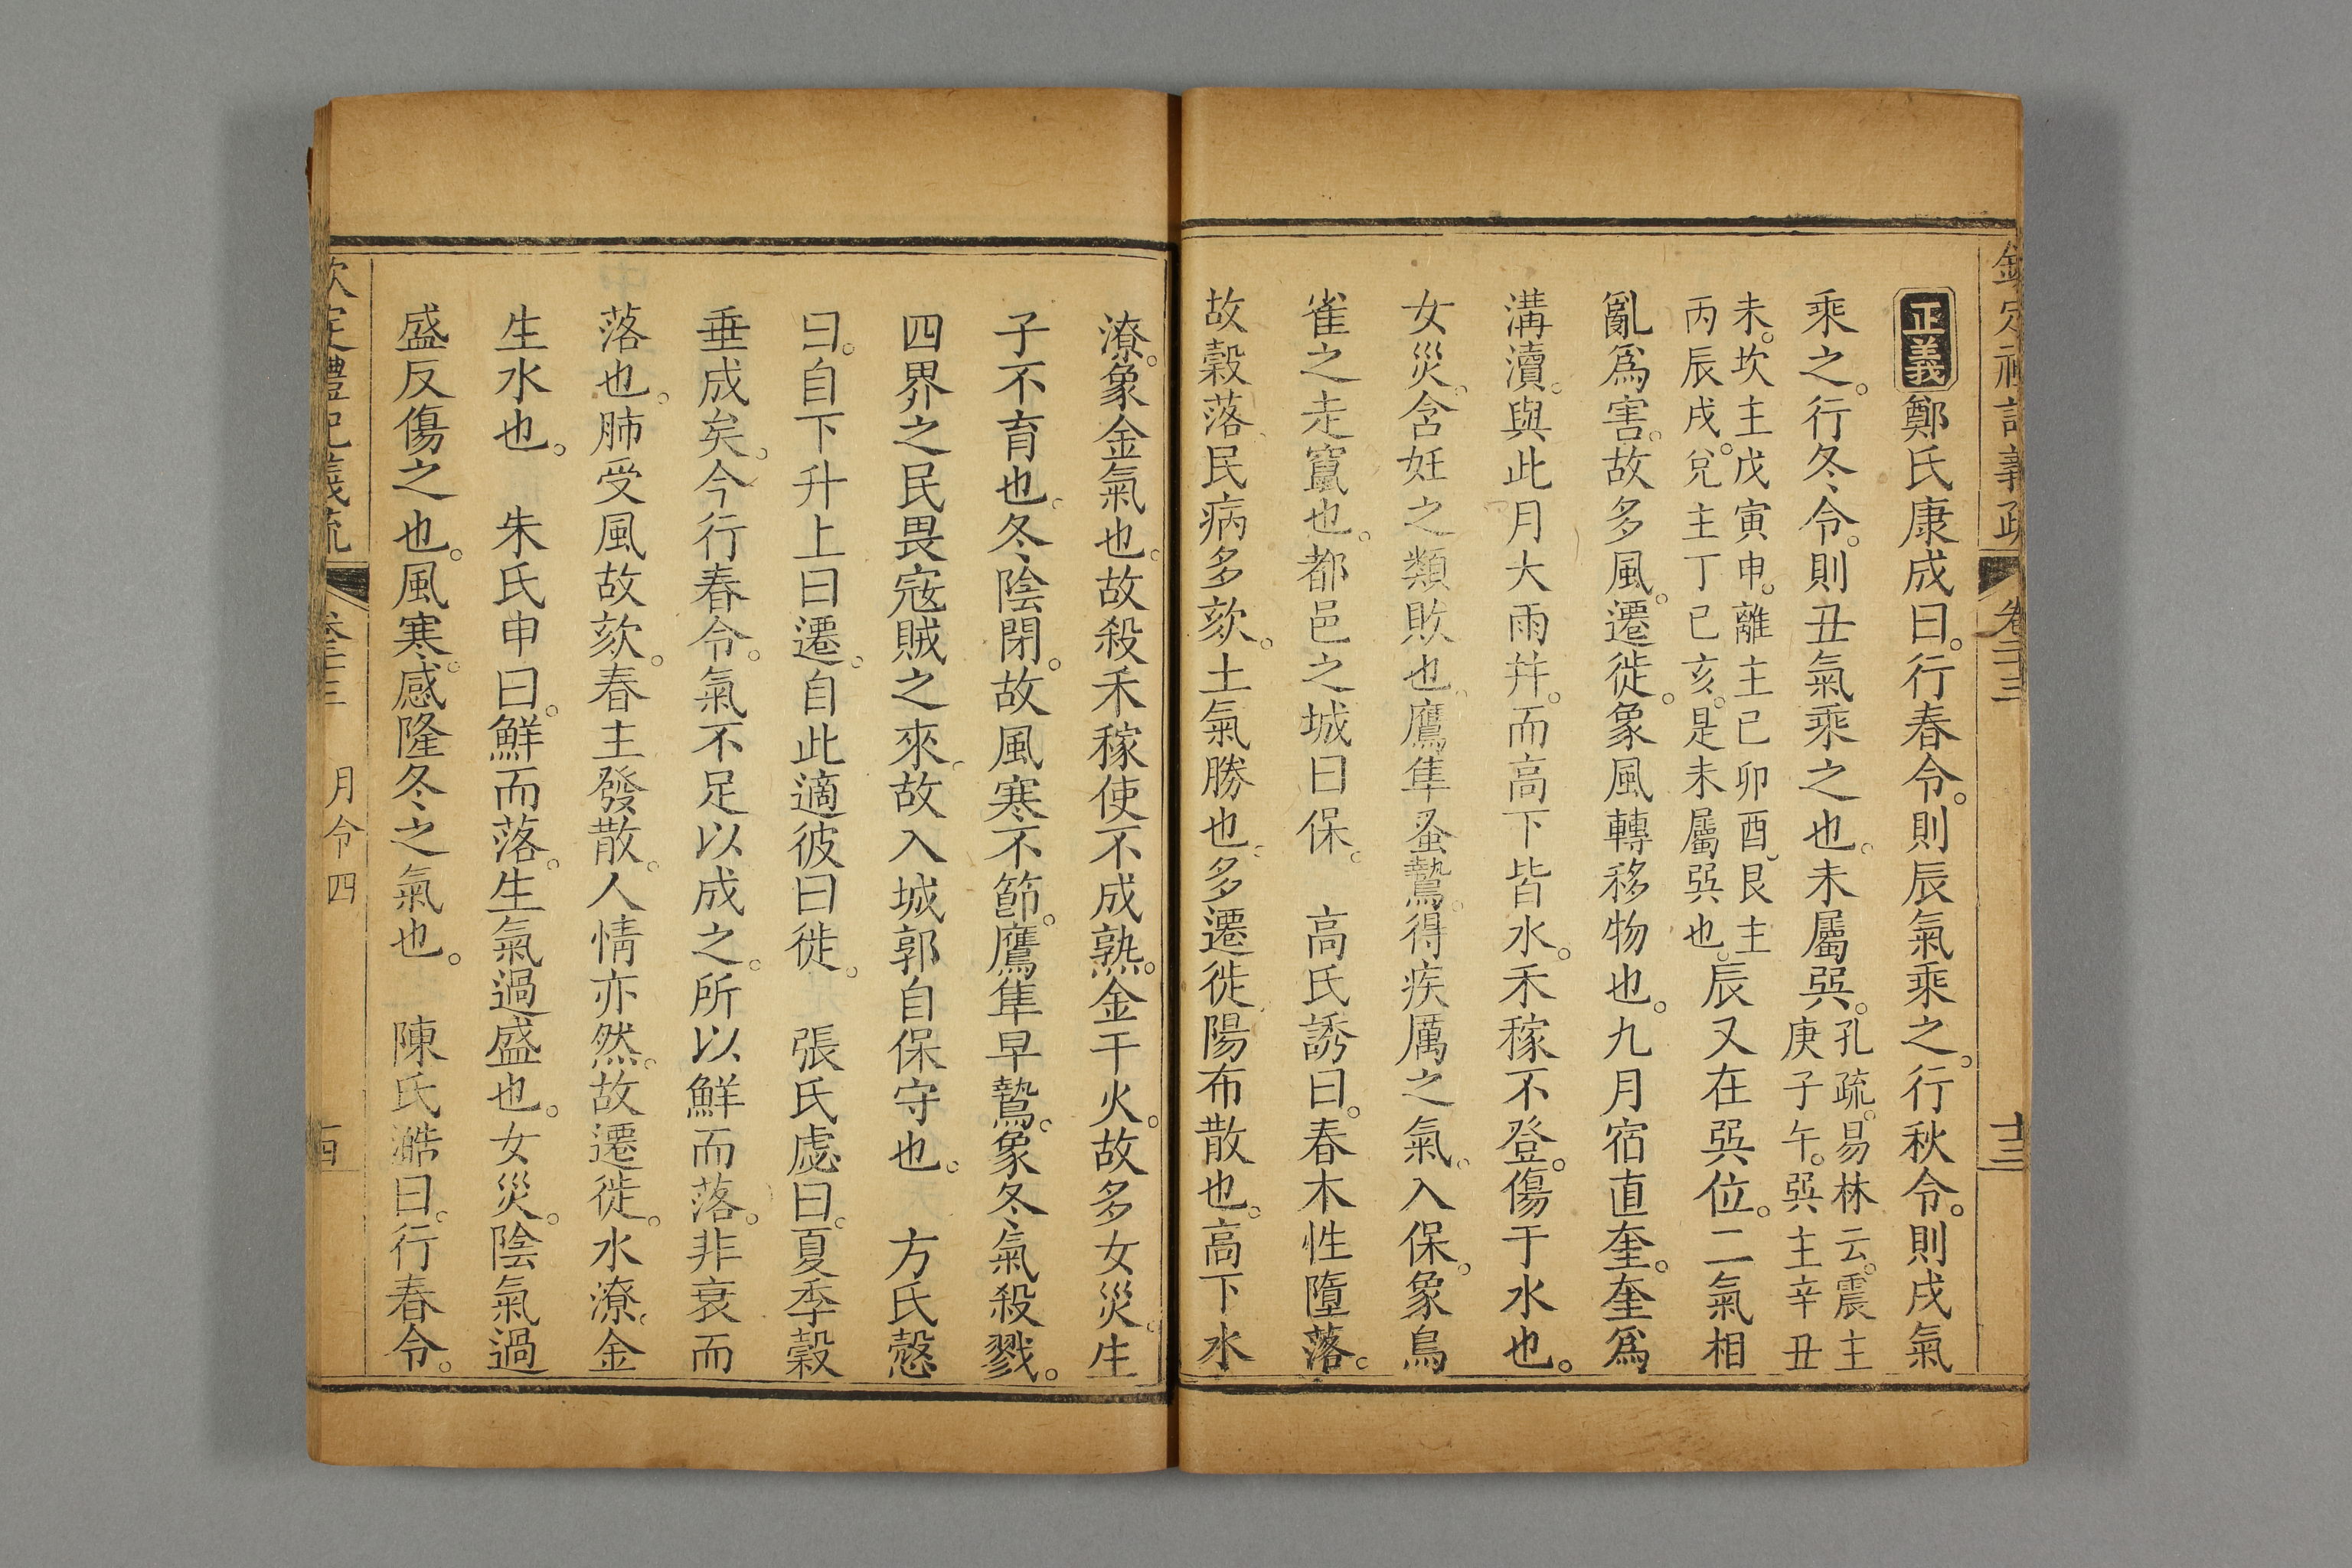 欽定禮記義疏 卷二十三 十三
正義鄭氏康成曰。行春令。則辰氣乘之。行秋令。則戌氣
乘之。行冬令。則丑氣乘之也。未屬巽。孔疏。易林云。震主庚子午。巽主辛丑
未。坎主戊寅申。離主己卯酉。艮主丙辰戌。兌主丁己亥。是未屬巽也。辰又在巽位。二氣相
亂爲害。故多風。遷徙。象風轉移物也。九月宿直奎。奎爲
溝瀆。與此月大雨幷。而高下皆水。禾稼不登。傷于水也。
女災。含妊之類敗也。鷹隼蚤鷙。得疾厲之氣。入保。象鳥
雀之走竄也。都邑之城曰保。 高氏誘曰。春木性墮落。
故穀落民病多欬。土氣勝也。多遷徙。陽布散也。高下水
潦。象金氣也。故殺禾稼使不成熟。金干火。故多女災。生
子不育也。冬陰閉。故風寒不節。鷹隼早鷙。象冬氣殺戮。
四界之民畏寇賊之來。故入城郭自保守也。 方氏慤
曰。自下升上曰遷。自此適彼曰徙。 張氏處曰。夏季穀
垂成矣。今行春令。氣不足以成之。所以鮮而落。非衰而
落也。肺受風故欬。春主發散。人情亦然。故遷徙。水潦。金
生水也。 朱氏申曰。鮮而落。生氣過盛也。女災。陰氣過
盛反傷之也。風寒。感隆冬之氣也。 陳氏澔曰。行春令。
欽定禮記義疏 卷二十三 月令四